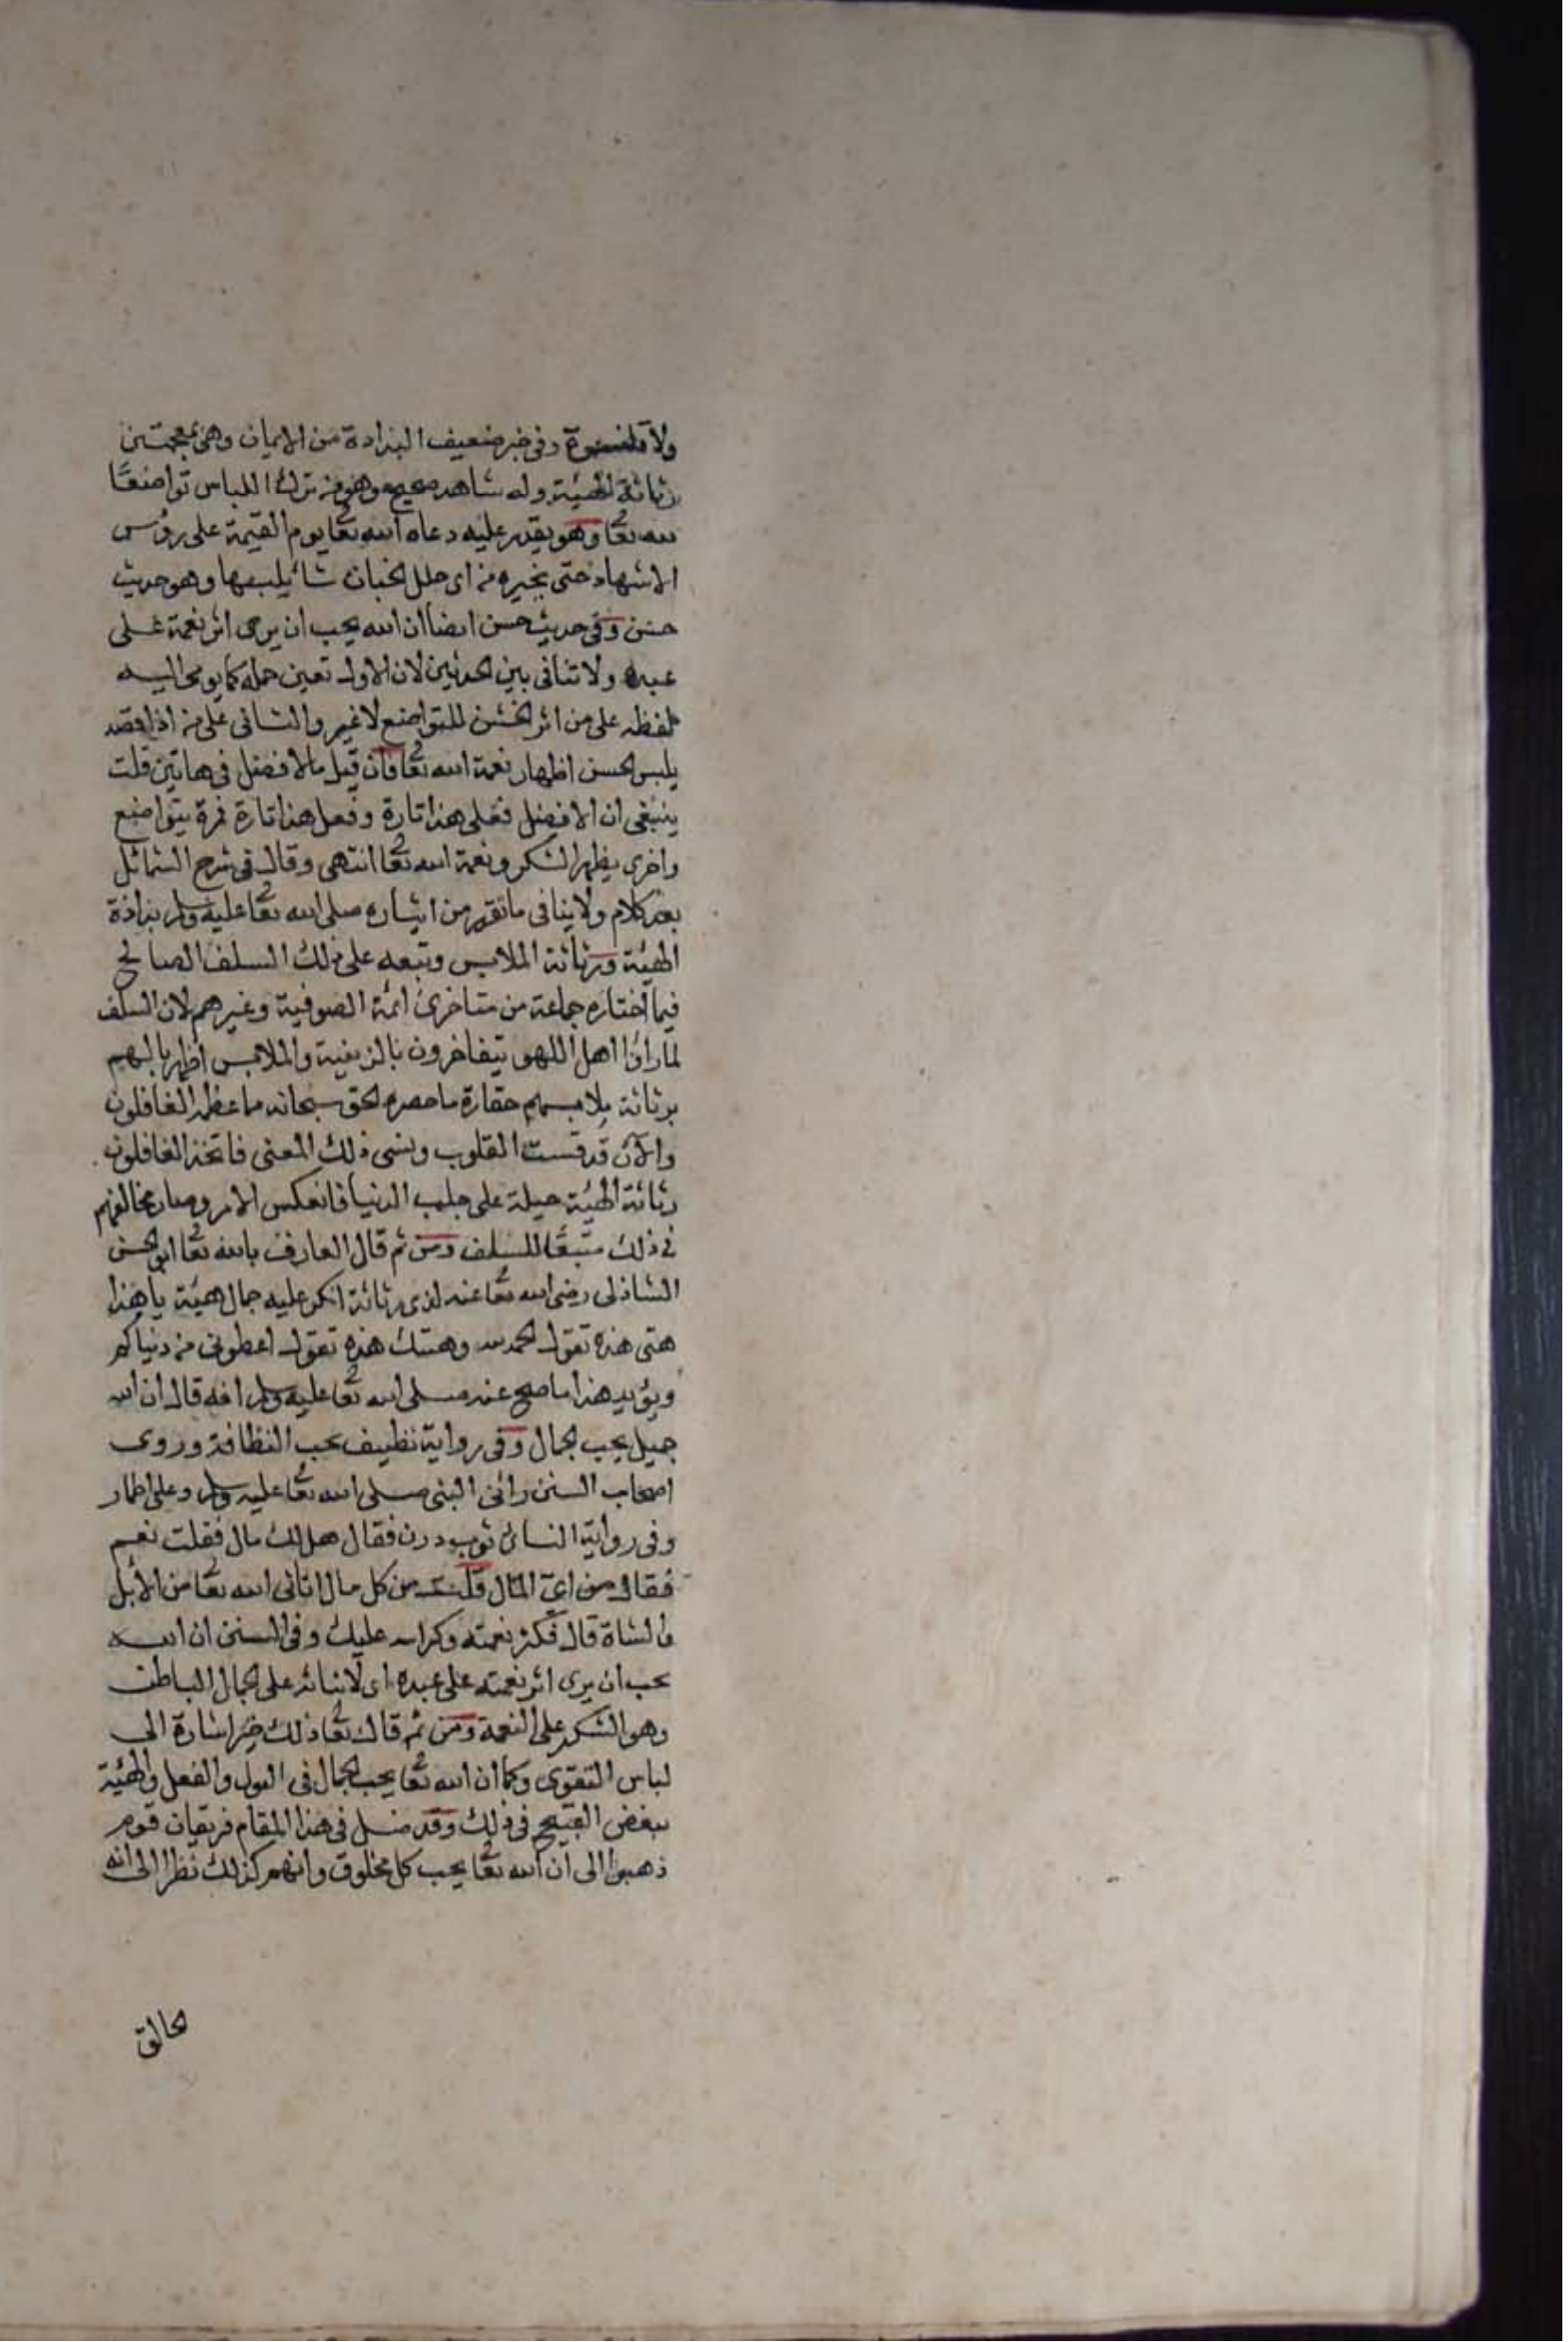 ولا قلنسوة وفى خبر ضعيف البذاذة من الايمان وهى بمعجمتين
رثاثة الهيئة وله شاهد صحيح وهو من ترك اللباس تواضعًا
لله تعا وهو يقدر عليه دعاه الله تعا يوم القيمة على رؤس
الاشهاد حتى يخيره من اى حلل الجنان شا يلبسها وهو حديث
حسن وفى حديث حسن ايضا ان الله يحب ان يرى اثر نعمة على
عبده ولا تنافى بين الحديثين لان الاول تعين حمله كما يومى اليه
لفظه على من اثر الخشن للتواضع لا غير والثانى على من اذا قصد
يلبس الحسن اظهار نعمة الله تعا فان قيل ما لافضل فى هاتين قلت
ينبغى ان الافضل فعلى هذا تارة وفعل هذا تارة فمرة يتواضع
واخرى يظهر الشكر ونعمة الله تعا انتهى وقال فى شرح الشمائل
بعد كلام ولا ينافى ما تقرر من ايثاره صلى الله تعا عليه وسلم بذاذة
الهيئة ورثاثة الملابس وتبعه على ذلك السلف الصالح
فيما اختاره جماعة من متاخرى ائمة الصوفية وغيرهم لان السلف
لما راؤا اهل اللهو يتفاخرون بالزينة والملابس اظهر بالهم
برثاثة ملابسهم حقارة ما حصره الحق سبحانه مما عظمه الغافلون
والآن قد قست القلوب ونسى ذلك المعنى فاتخذ الغافلون
رثاثة الهيئة حيلة على جلب الدنيا فانعكس الامر وصار مخالفهم
فى ذلك متبعًا للسلف ومن ثم قال العارف بالله تعا ابو الحسن
الشاذلى رضى الله تعا عنه لذى رثاثة انكر عليه جمال هيئة يا هذا
هتى هذه تقول الحمد لله وهتك هذه تقول اعطونى من دنياكم
ويؤيد هذا ما صح عنه صلى الله تعا عليه وسلم انه قال ان الله
جميل يحب الجمال وفى رواية نظيف يحب النظافة وروى
اصحاب السنن رانى النبى صلى الله تعا عليه وسلم وعلى اطمار
وفى رواية النسائ ثوب درن فقال هل لك مال فقلت نعم
فقال من اىّ المال قلت من كل مال اتانى الله تعا من الابل
والشاة قال فكثر نعمته وكرامه عليك وفى السنن ان الله
يحب ان يرى اثر نعمته على عبده اى لانبائه على الجمال الباطن
وهو الشكر على النعمة ومن ثم قال تعا ذلك خير اشارة الى
لباس التقوى وكما ان الله تعا يحب الجمال فى القول والفعل والهيئة
يبغض القبيح فى ذلك وقد ضل فى هذا المقام فريقان قوم
ذهبوا الى ان الله تعا يحب كل مخلوق وانهم كذلك نظرا الى انه
خالق